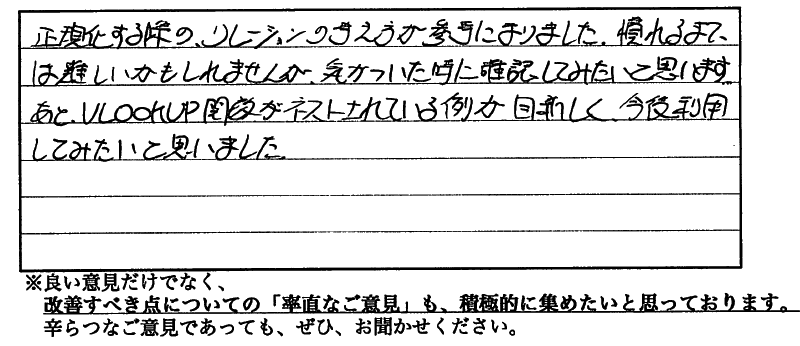 正規化する際の、リレーションの考え方が参考になりました。慣れるまで、
は難しいかもしれませんが、気がついた時に確認してみたいと思います。
あと、VLOOKUP関数がネストされている例が目新しく、今後利用
してみたいと思いました。
※良い意見だけでなく、
改善すべき点についての「率直なご意見」も、積極的に集めたいと思っております。
辛らつなご意見であっても、ぜひ、お聞かせください。